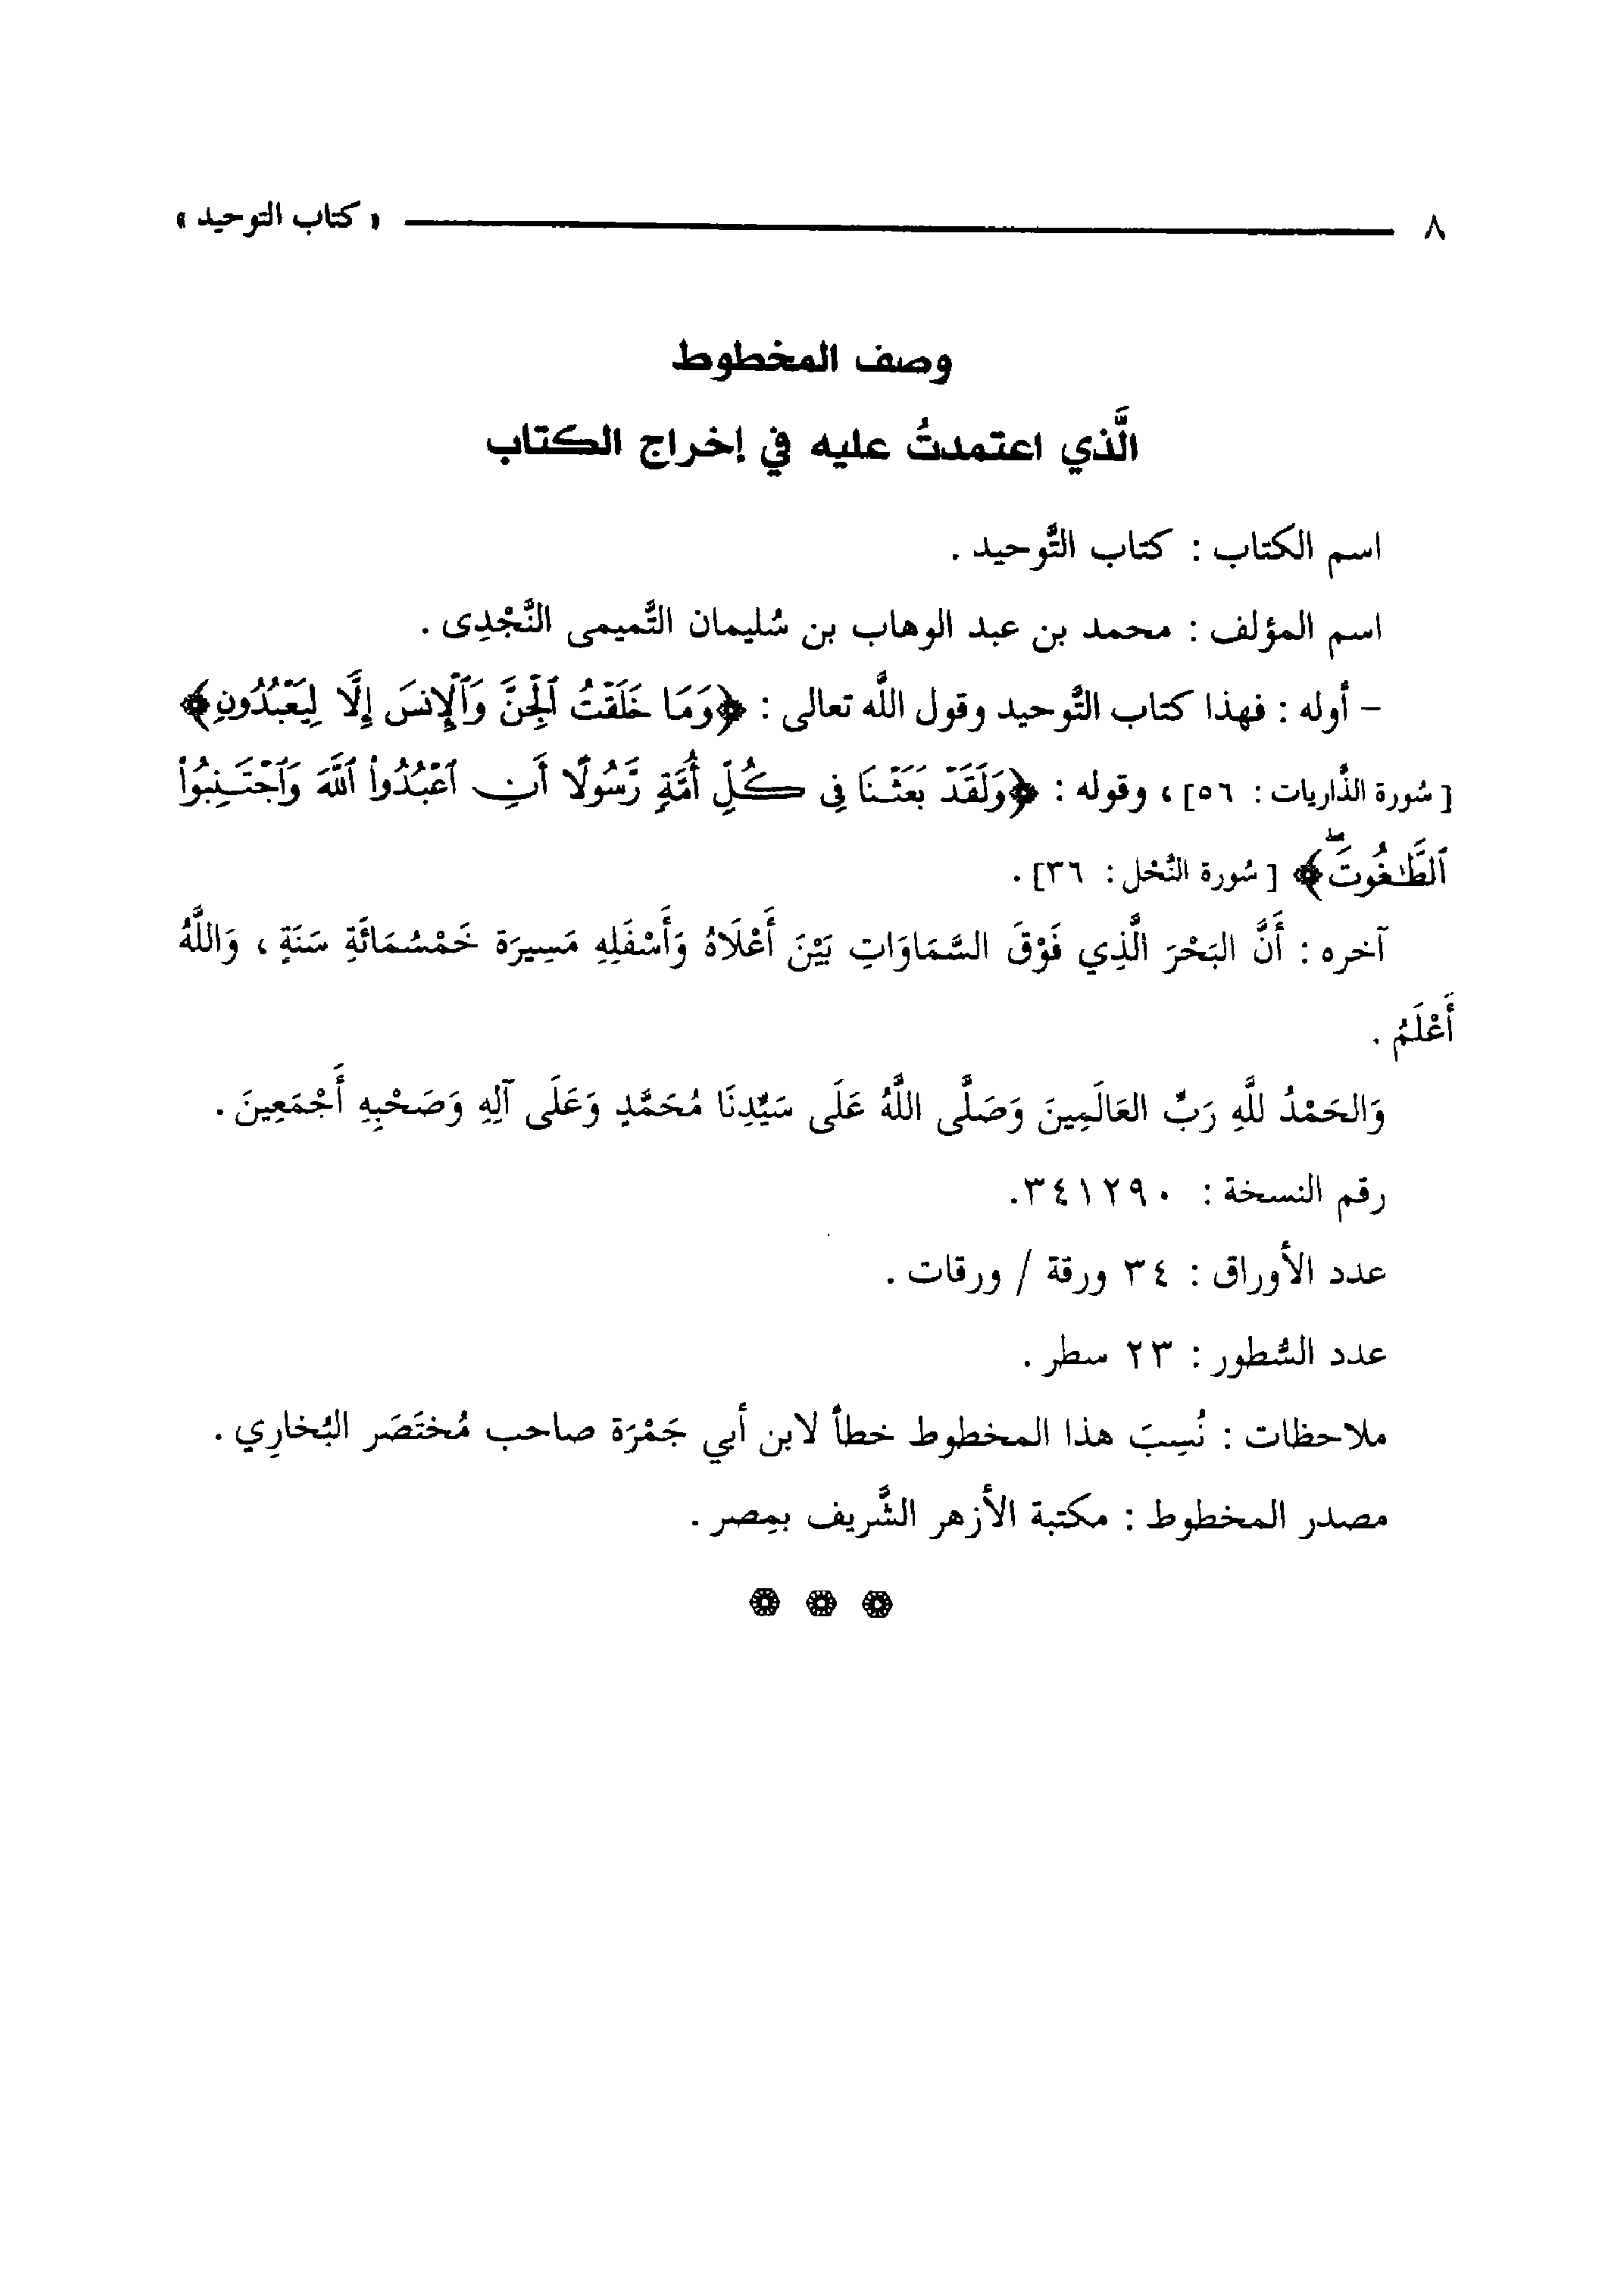 ٨ « كتاب التوحيد »
وصف المخطوط
الَّذي اعتمدتُ عليه في إخراج الكتاب
اسم الكتاب : كتاب التَّوحيد .
اسم المؤلف : محمد بن عبد الوهاب بن سُليمان التَّميمى النَّجْدِى .
- أوله : فهذا كتاب التَّوحيد وقول اللَّه تعالى : ﴿وَمَا خَلَقْتُ ٱلْجِنَّ وَٱلْإِنسَ إِلَّا لِيَعْبُدُونِ﴾
[ سُورة الذَّاريات : ٥٦] ، وقوله : ﴿وَلَقَدْ بَعَثْنَا فِى كُلِّ أُمَّةٍ رَّسُولًا أَنِ ٱعْبُدُوا۟ ٱللَّهَ وَٱجْتَنِبُوا۟
ٱلطَّٰغُوتَۖ﴾ [ سُورة النَّحْل : ٣٦] .
آخره : أَنَّ البَحْرَ الَّذِي فَوْقَ السَّمَاوَاتِ بَيْنَ أَعْلَاهُ وَأَسْفَلِهِ مَسِيرَة خَمْسُمَائَةِ سَنَةٍ ، وَاللَّهُ
أَعْلَمُ .
وَالحَمْدُ للَّهِ رَبِّ العَالَمِينَ وَصَلَّى اللَّهُ عَلَى سَيِّدِنَا مُحَمَّدٍ وَعَلَى آلِهِ وَصَحْبِهِ أَجْمَعِينَ .
رقم النسخة : ٣٤١٢٩٠.
عدد الأوراق : ٣٤ ورقة / ورقات .
عدد السُّطور : ٢٣ سطر .
ملاحظات : نُسِبَ هذا المخطوط خطأً لابن أبي جَمْرَة صاحب مُختَصَر البُخارِي .
مصدر المخطوط : مكتبة الأزهر الشَّريف بمِصر .